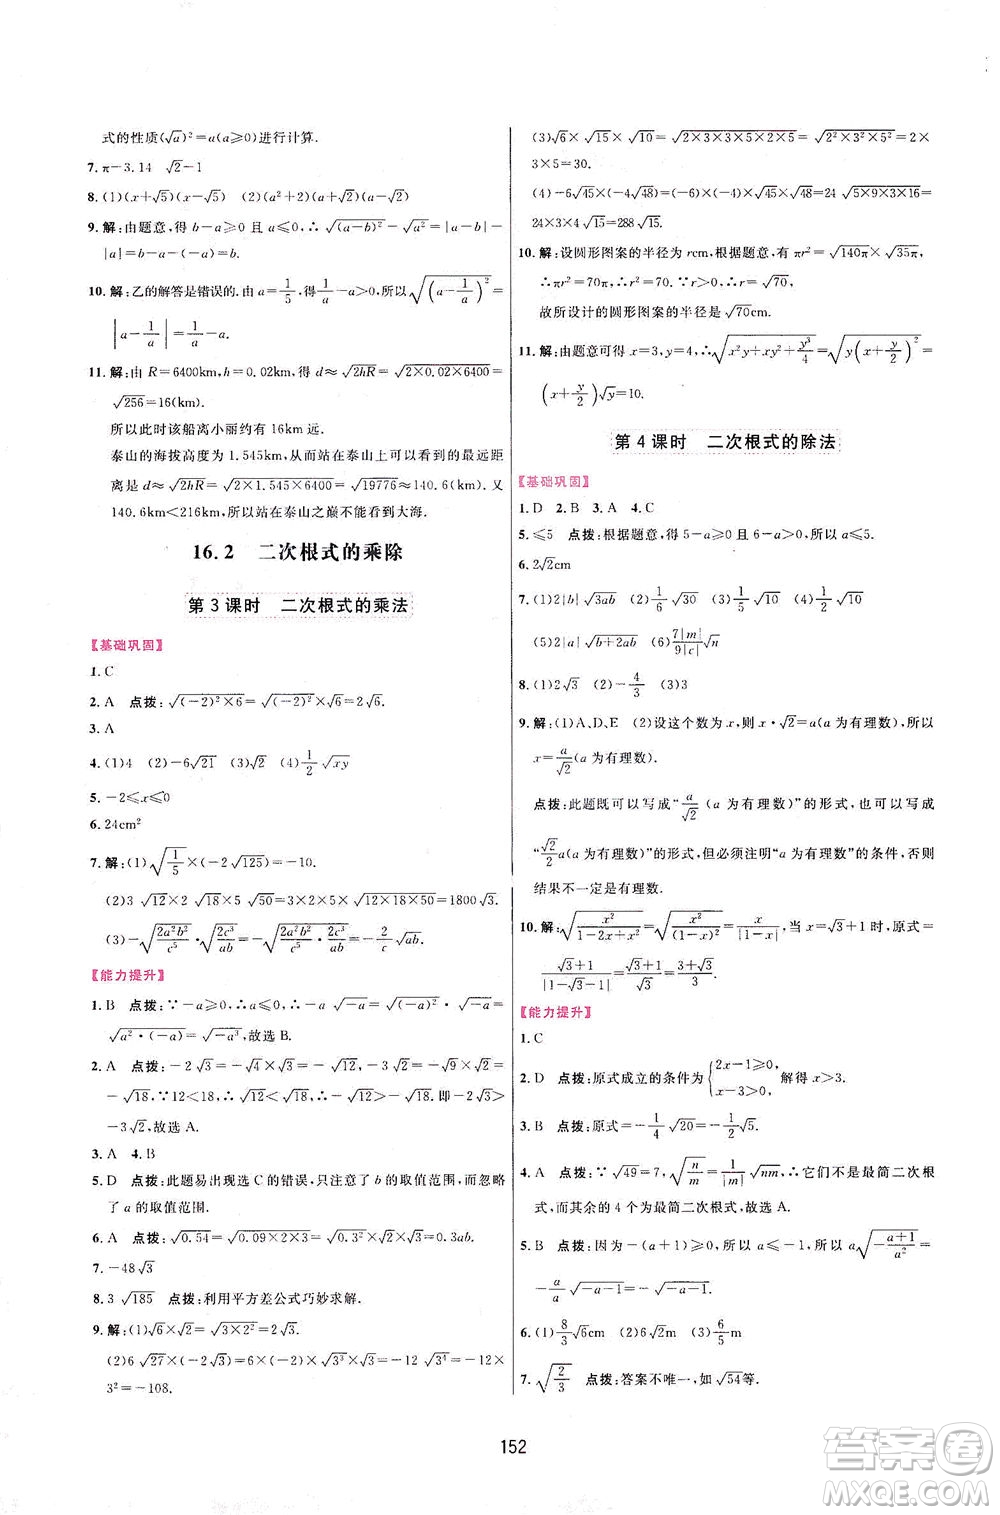 式的性质(√a)²=a(a≥0)进行计算.
7. π-3.14 √2-1
8. (1)(x+√5)(x-√5) (2)(a²+2)(a+√2)(a-√2)
9. 解:由题意,得 b-a≥0 且 a≤0,∴√(a-b)²-√a²=|a-b|-
|a|=b-a-(-a)=b.
10. 解:乙的解答是错误的.由 a=1/5,得 1/a-a>0,所以 √(a-1/a)²=
|a-1/a|=1/a-a.
11. 解:由 R=6400km,h=0.02km,得 d≈√2hR=√2×0.02×6400=
√256=16(km).
所以此时该船离小丽约有 16km 远.
泰山的海拔高度为 1.545km,从而站在泰山之巅,能看到的最远距
离是 d≈√2hR=√2×1.545×6400=√19776≈140.6(km).又
140.6km<216km,所以站在泰山之巅不能看到大海.
16.2 二次根式的乘除
第 3 课时 二次根式的乘法
【基础巩固】
1. C
2. A 点拨:√(-2)²×6=√(-2)²×√6=2√6.
3. A
4. (1)4 (2)-6√21 (3)√2 (4)1/2√xy
5. -2≤x≤0
6. 24cm²
7. 解:(1)√1/5×(-2√125)=-10.
(2)3√18×2√18×5√50=3×2×5×√18×18×50=1800√3.
(3)-√2a²b²/c⁵·√2c³/ab=-√2a²b²/c⁵·2c³/ab=-2/c√ab.
【能力提升】
1. B 点拨:∵-a≥0,∴a≤0,∴-a√-a=√(-a)²·√-a=
√a²·(-a)=√-a³,故选 B.
2. A 点拨:-2√3=-√4×√3=-√12,-3√2=-√9×√2=
-√18,∵12<18,∴√12<√18,∴-√12>-√18.即-2√3>
-3√2,故选 A.
3. A 4. B
5. D 点拨:此题易出现选 C 的错误,只考虑了 b 的取值范围而忽略
了 a 的取值范围.
6. A 点拨:√0.54=√0.09×2×3=√0.3²×√2×√3=0.3ab.
7. -48√3
8. 3√185 点拨:利用平方差公式巧妙求解.
9. 解:(1)√6×√2=√3×2²=2√3.
(2)6√27×(-2√3)=6×(-2)×√3³×√3=-12√3⁴=-12×
3²=-108.
(3)√6×√15×√10=√2×3×3×5×2×5=√2²×3²×5²=2×
3×5=30.
(4)-6√45×(-4√48)=(-6)×(-4)×√45×48=24√5×9×3×16=
24×3×4√15=288√15.
10. 解:设圆形图案的半径为 rcm,根据题意,有 πr²=√140π×√35π,
∴πr²=70π,∴r²=70.∵r>0,∴r=√70.
故所设计的圆形图案的半径是 √70cm.
11. 解:由题意可得 x=3,y=4,∴√x²y+xy²+y³/4=√y(x+y/2)²=
(x+y/2)√y=10.
第 4 课时 二次根式的除法
【基础巩固】
1. D 2. B 3. A 4. C
5. ≤5 点拨:根据题意,得 5-a≥0 且 6-a>0,所以 a≤5.
6. 2√2cm
7. (1)2|b|√3ab (2)1/6√30 (3)1/5√10 (4)1/2√10
(5)2|a|√b+2ab (6)7|m|/9|c|√n
8. (1)2√3 (2)-4/3 (3)3
9. 解:(1)A、D、E (2)设这个数为 x,则 x·√2=a(a 为有理数),所以
x=a/√2(a 为有理数).
点拨:此题既可以写成“a/√2(a 为有理数)”的形式,也可以写成
“√2/2a(a 为有理数)”的形式,但必须注明“a 为有理数”的条件,否则
结果不一定是有理数.
10. 解:√x²/1-2x+x²=√x²/(1-x)²=x/|1-x|,当 x=√3+1 时,原式=
√3+1/|1-√3-1|=√3+1/√3=3+√3/3.
【能力提升】
1. C
2. D 点拨:原式成立的条件为{2x-1≥0, x-3>0,解得 x>3.
3. B 点拨:原式=-1/4√20=-1/2√5.
4. A 点拨:∵√49=7,√n/m=1/|m|√nm,∴它们不是最简二次根
式.而其余的 4 个为最简二次根式,故选 A.
5. B 点拨:因为-(a+1)≥0,所以 a≤-1,所以 a√-a+1/a²=
-a/a√-a-1=-√-a-1.
6. (1)8/3√6cm (2)√2cm (3)6/5m
7. √2/3 点拨:答案不唯一,如 √54等.
152
答案圈
MXQE.COM